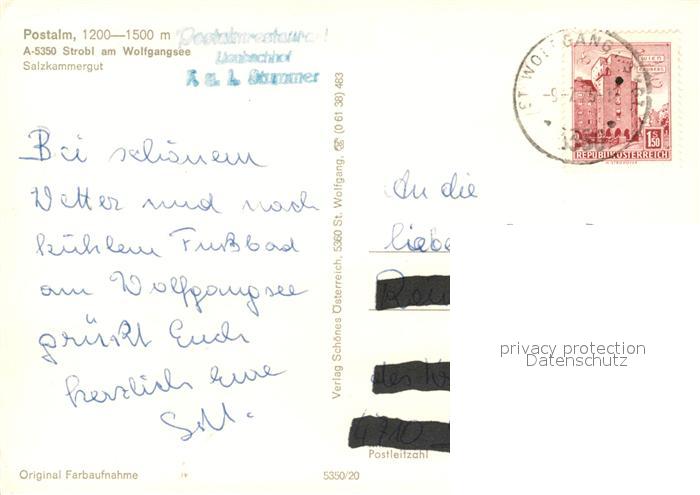 Postalm, 1200—1500 m
A-5350 Strobl am Wolfgangsee
Salzkammergut
Bei schönem
Wetter und nach
kühlem Fußbad
am Wolfgangsee
grüßt Euch
herzlich Eure
Verlag Schönes Österreich, 5360 St. Wolfgang, ☏ (0 61 38) 483
ST. WOLFGANG
WIEN
1.50
REPUBLIK ÖSTERREICH
An die
liebe
privacy protection
Datenschutz
Postleitzahl
Original Farbaufnahme
5350/20